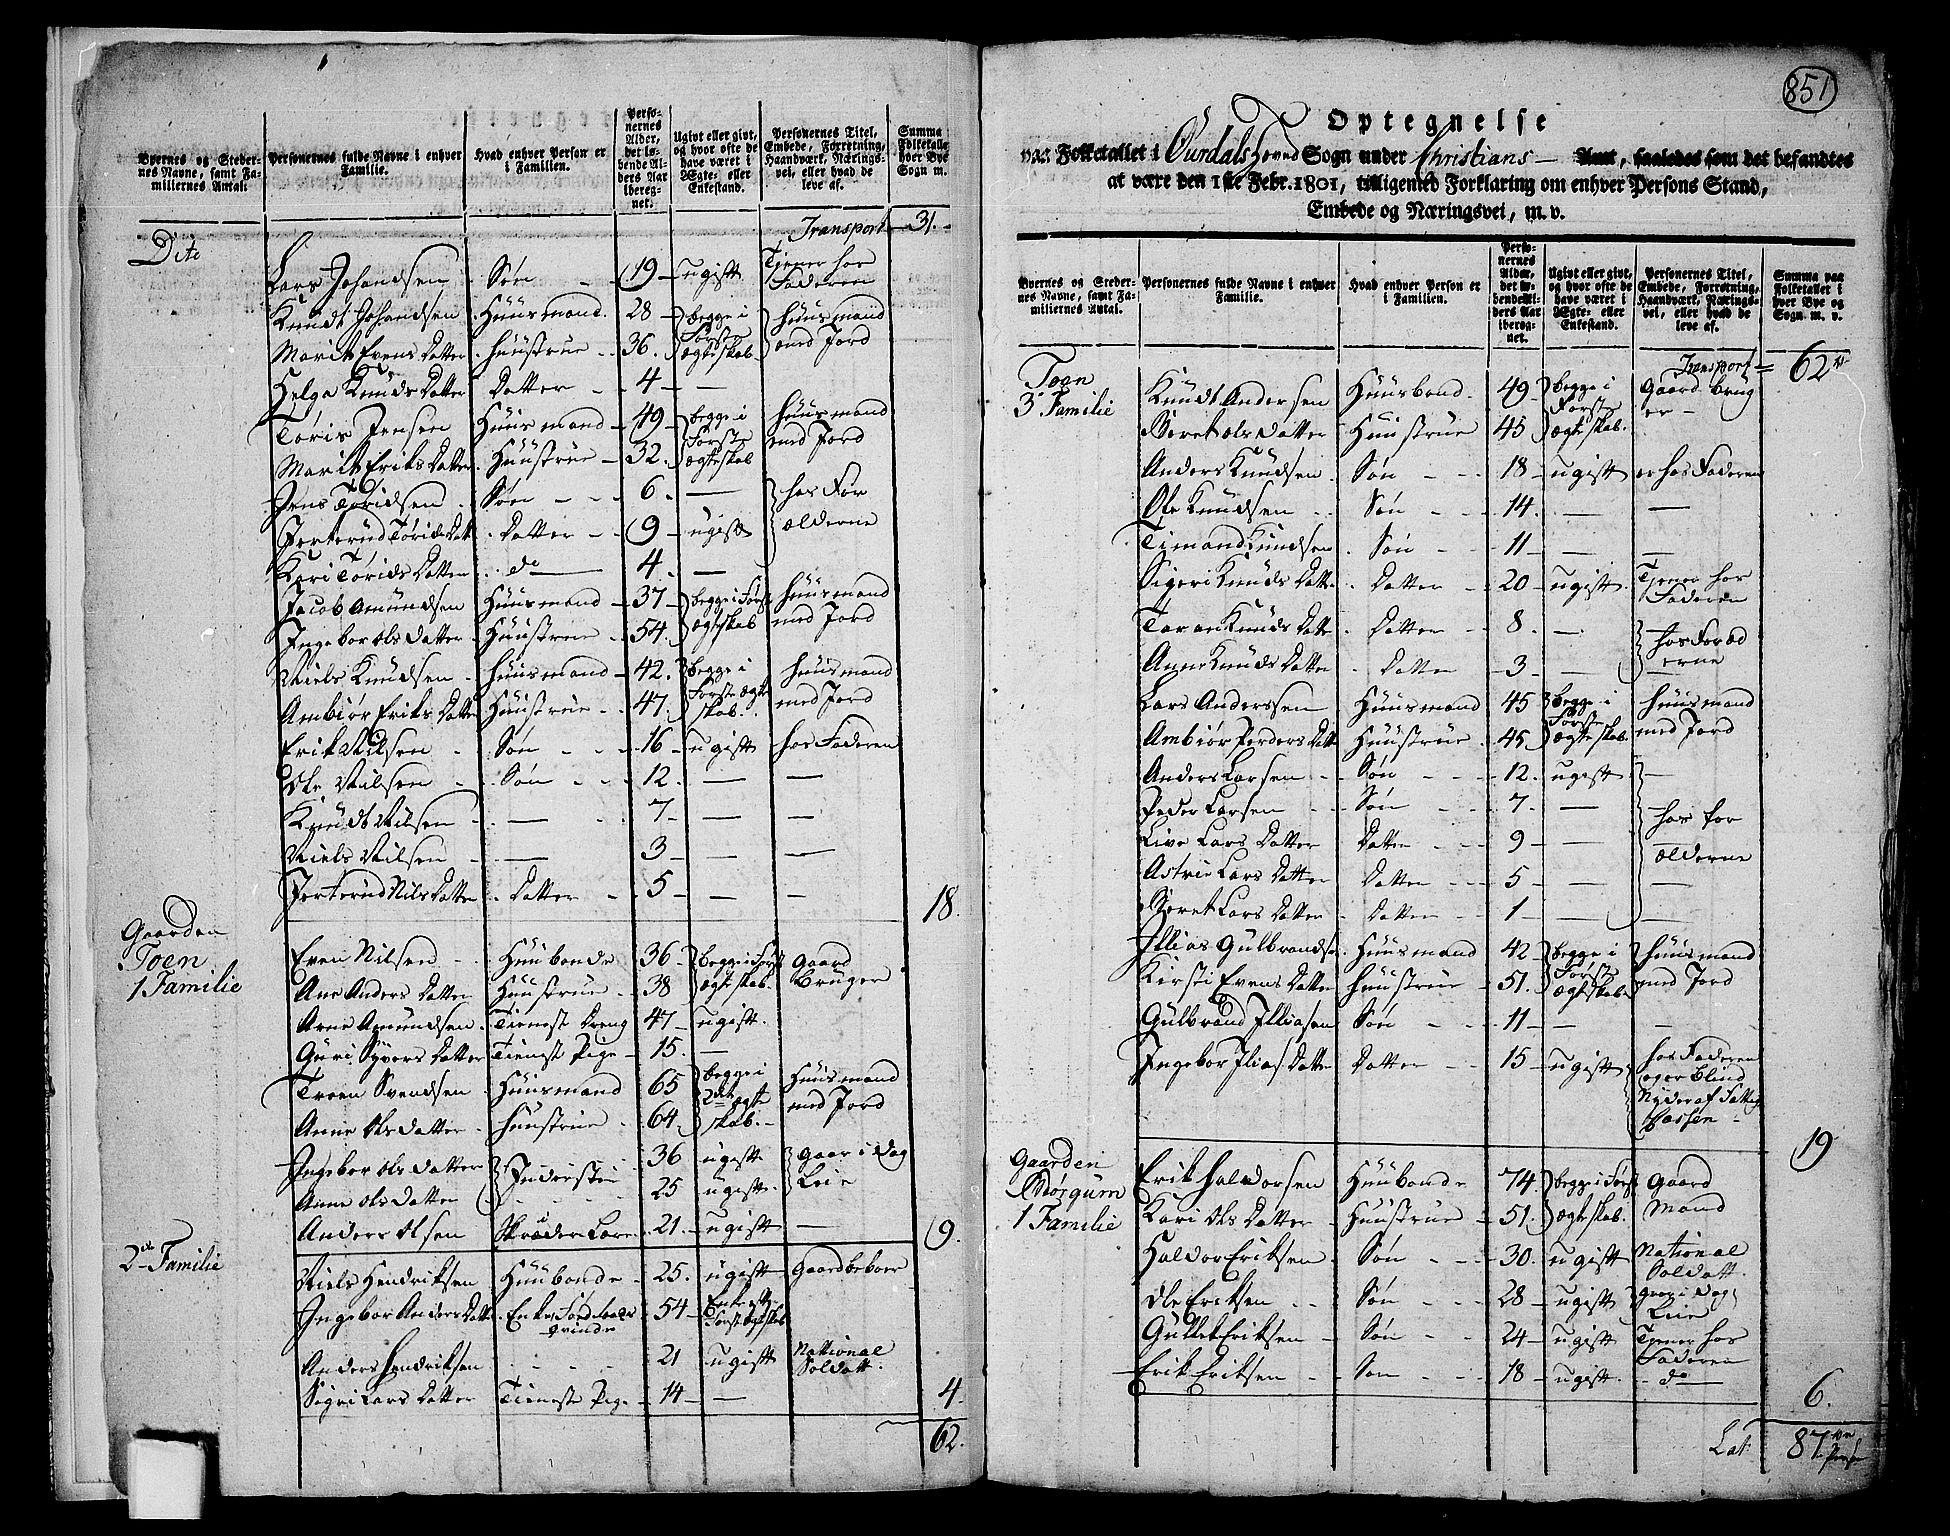 Byernes og Steder-
nes Navne, samt Fa-
miliernes Antal.
Personernes fulde Navne i enhver
Familie.
Hvad enhver Person er
i Familien.
Perso-
nernes
Alder,
det lø-
bende Al-
ders Aar
ibereg-
net.
Ugivt eller givt,
og hvor ofte de
have været i
Ægte- eller
Enkestand.
Personernes Titel,
Embede, Forretning,
Haandværk, Nærings-
vei, eller hvad de
leve af.
Summa
Folketallet
hver Bye
Sogn m.
Transport 31.
Dito
Lars Johandsen Søn 19 ugift Tjener hos Faderen
Knudt Johandsen Huusmand 28 begge i Første ægteskab huusmand med Jord
Marit Evens Datter huustrue 36.
Helga Knuds Datter Datter 4 —
Tøris Jensen Huusmand 49 begge i Første ægteskab huusmand med Jord
Marit Eriks Datter Huustrue 32.
Jens Toridsen Søn 6. — hos For ælderne
Jorterud Torids Datt Datter 9 ugift
Kari Torids Datter do 4. —
Jacob Amundsen Huusmand 37 begge i Først ægteskab huusmand med Jord
Ingebor Ols Datter Huustrue 54.
Niels Knudsen huusmand 42. begge i Første ægte skab. huusmand med Jord
Ambiør Eriks Datter Huustrue 47.
Erik Nilsen Søn 16 ugift hos Faderen
Ole Nilsen Søn 12. — —
Knudt Nilsen — 7 — —
Niels Nilsen — 3 — —
Jorterud Nils Datter Datter 5 — —
18.
Gaarden
Toen
1 Familie
Even Nilsen Huusbonde 36 begge i Først ægteskab. Gaard Bruger
Ane Anders Datter Huustrue 38
Arne Amundsen Tienest Dreng 47 ugift.
Guri Syvers Datter Tienest Pige 15. —
Troen Svendsen Huusmand 65 begge i 2det ægte skab. Huusmand med Jord
Anne Ols Datter huustrue 64.
Ingebor Ols Datter Inderster 36 ugift Gaar i Dag Leie
Anne Ols Datter 25 ugift.
Anders Olsen Skræder Lære 21. ugift —
9.
2de Familie
Niels Hendriksen Huusbonde 25. ugift Gaardbeboer
Ingebor Anders Datt Enke 54 Enke efter Første Egteskab
Anders Hendriksen 21 ugift National Soldatt.
Sigri Lars Datter Tieneste Pige 14 —
4.
62.
851
Optegnelse
paa Folketallet i Ourdals Hoved Sogn under Christians — Amt, saaledes som det befandtes
at være den 1ste Febr. 1801, tilligemed Forklaring om enhver Persons Stand,
Embede og Næringsvei, m. v.
Byernes og Steder-
nes Navne, samt Fa-
miliernes Antal.
Personernes fulde Navne i enhver
Familie.
Hvad enhver Person er
i Familien.
Perso-
nernes
Alder,
det lø-
bende Al-
ders Aar
ibereg-
net.
Ugivt eller givt,
og hvor ofte de
have været i
Ægte- eller
Enkestand.
Personernes Titel,
Embede, Forretning,
Haandværk, Nærings-
vei, eller hvad de
leve af.
Summa paa
Folketallet i
hver Bye og
Sogn. m. v.
Transport 62
Toen
3 Familie
Knudt Andersen Huusbond. 49 begge i Første ægteskab. Gaard Brug er
Beret Ols Datter Huustrue 45
Anders Knudsen Søn 18 ugift er hos Faderen
Ole Knudsen Søn 14. — —
Timand Knudsen Søn 11 — —
Sigeri Knuds Datter Datter 20 ugift Tjener hos Faderen
Toran Knuds Datter Datter 8. — hos Foræld erne
Anne Knuds Datter Datter 3 —
Lars Anderssen Huusmand 45 begge i Første ægteskab. huusmand med Jord
Ambiør Peders Datt Huustrue 45
Anders Larsen Søn 12. ugift —
Peder Larsen Søn 7. — hos for
Live Lars Datter Datter 9 — ælderne
Astrie Lars Datter Datter 5 — —
Beret Lars Datter Datter 1 — —
Illias Gulbrandse Huusmand 42 begge i Første ægteskab huusmand med Jord
Kirsti Evens Datter huustrue 51.
Gulbrand Illiasen Søn 11 — —
Ingebor Ilias Datter Datter 15 ugift hos Faderen
og er Blind
Nyder af Fattig
Cassen
19
Gaarden
Børgum
1 Familie
Erik Haldorsen Huusbonde 74. begge i Først ægteskab. Gaard Mand
Kari Ols Datter Huustrue 51.
Haldor Eriksen Søn 30. ugift National Soldatt.
Ole Eriksen Søn 28 ugift gaar i Dag Leie
Gullek Eriksen Søn 24 ugift Tjener hos Faderen
Erik Eriksen Søn 18 ugift. do
6.
Lat. 87